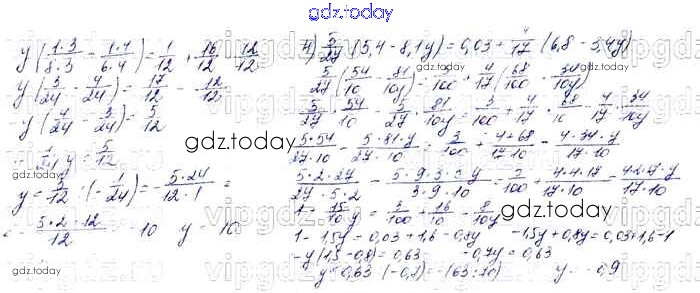 gdz.today
y(1·3/8·3 - 1·4/6·4) = 1/12 + 16/12 - 12/12
y(3/24 - 4/24) = 17/12 - 12/12
y(4/24 - 3/24) = 5/12
- 1/24 y = 5/12
y = 5/12 : (- 1/24) = - 5·24/12·1 =
= - 5·2·12/12 = - 10 y = - 10
4) 5/27 (5,4 - 8,1y) = 0,03 + 4/17 (6,8 - 3,4y)
5/27 (54/10 - 81/10y) = 3/100 + 4/17 (68/10 - 34/10y)
5/27 · 54/10 - 5/27 · 81/10y = 3/100 + 4/17 · 68/10 - 4/17 · 34/10y
5·54/27·10 - 5·81·y/27·10 = 3/100 + 4·68/17·10 - 4·34·y/17·10
5·2·27/27·5·2 - 5·9·3·3y/3·9·10 = 3/100 + 4·4·17/17·10 - 4·2·17·y/17·10
1 - 15/10 y = 3/100 + 16/10 - 8/10 y
1 - 1,5y = 0,03 + 1,6 - 0,8y -1,5y + 0,8y = 0,03 + 1,6 - 1
-y(1,5 - 0,8) = 0,63 -0,7y = 0,63
y = 0,63 : (-0,7) = -(63:70) y = -0,9
gdz.today
gdz.today
gdz.today
gdz.today